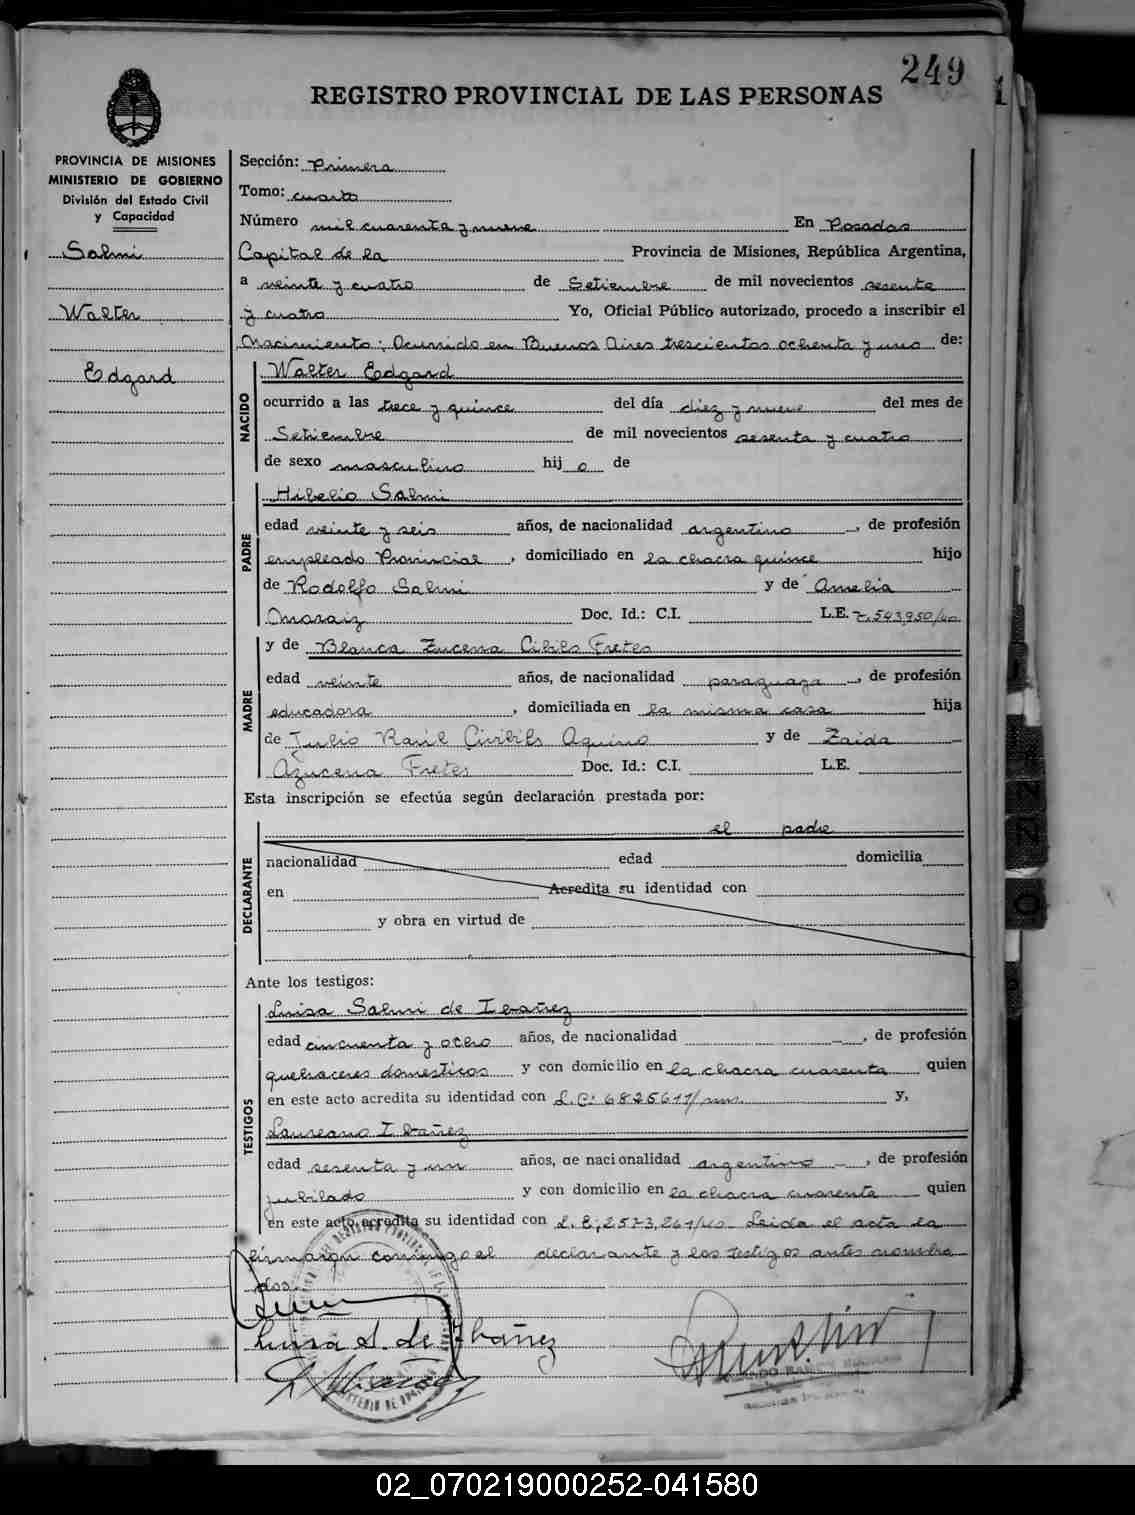 249
REGISTRO PROVINCIAL DE LAS PERSONAS
PROVINCIA DE MISIONES
MINISTERIO DE GOBIERNO
División del Estado Civil
y Capacidad
Salmi
Walter
Edgard
Sección: Primera
Tomo: cuarto
Número mil cuarenta y nueve En Posadas
Capital de la Provincia de Misiones, República Argentina,
a veinte y cuatro de Setiembre de mil novecientos sesenta
y cuatro Yo, Oficial Público autorizado, procedo a inscribir el
Nacimiento; Ocurrido en Buenos Aires trescientos ochenta y uno de:
NACIDO
Walter Edgard
ocurrido a las trece y quince del día diez y nueve del mes de
Setiembre de mil novecientos sesenta y cuatro
de sexo masculino hij o de
PADRE
Hibelio Salmi
edad veinte y seis años, de nacionalidad argentino, de profesión
empleado Provincial, domiciliado en la chacra quince hijo
de Rodolfo Salmi y de Amelia
Doc. Id.: C.I. L.E. 7.543,950/
y de Blanca Zucena Cibils Fretes
MADRE
edad veinte años, de nacionalidad paraguaya, de profesión
educadora, domiciliada en la misma casa hija
de Julio Raúl Aquino y de Zaida
Azucena Fretes Doc. Id.: C.I. L.E.
Esta inscripción se efectúa según declaración prestada por:
el padre
DECLARANTE
nacionalidad edad domicilia
en Acredita su identidad con
y obra en virtud de
Ante los testigos:
TESTIGOS
Luisa Salmi de Ibañez
edad cincuenta y ocho años, de nacionalidad , de profesión
quehaceres domesticos y con domicilio en la chacra cuarenta quien
en este acto acredita su identidad con L.C: 6825611/ y,
Laureano Ibañez
edad sesenta y un años, de nacionalidad argentino, de profesión
jubilado y con domicilio en la chacra cuarenta quien
en este acto acredita su identidad con L.E; 2573,261/ Leida el acta la
firmarón conmigo el declarante y los testigos antes nombra
dos.
Luisa S. de Ibañez
02_070219000252-041580